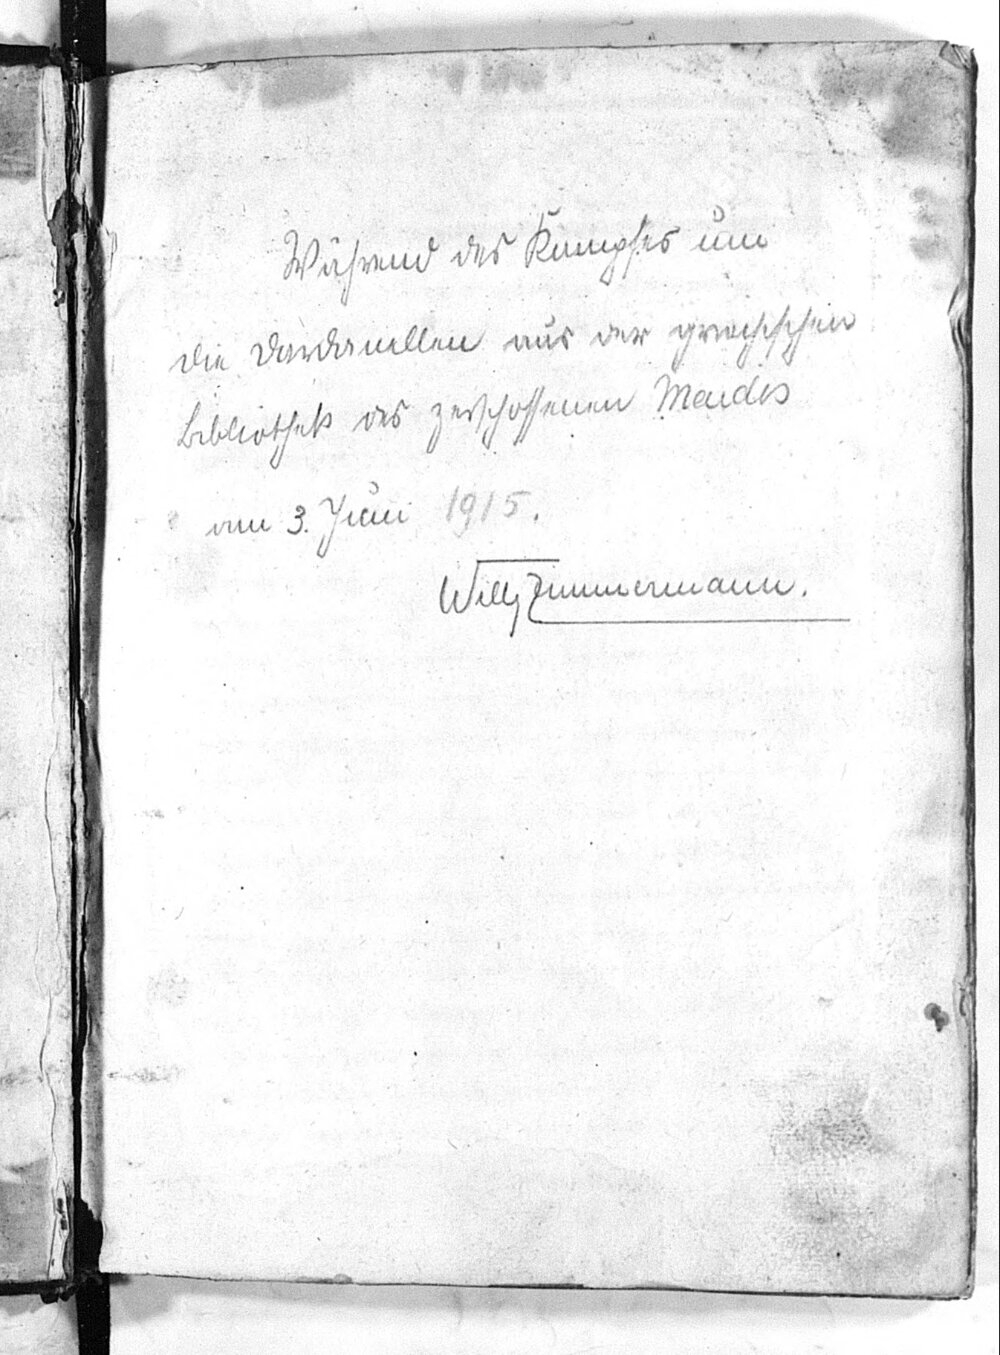 Während des Kampfes um
die Dardanellen aus der griechischen
Bibliothek des zerschossenen Maidos
am 3. Juni 1915.
Willy Zimmermann.